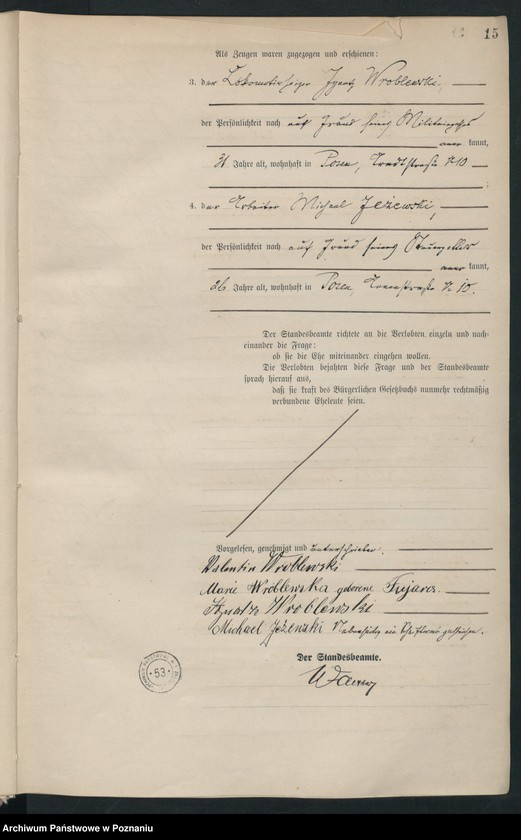 15
Als Zeugen waren zugezogen und erschienen:
3. der Lokomotivheizer Ignatz Wroblewski,
der Persönlichkeit nach auf Grund seines Militärpasses
aner kannt,
Jahre alt, wohnhaft in Posen,
4. der Arbeiter Michael Jeżewski,
der Persönlichkeit nach auf Grund seines Steuerzettels
aner kannt,
26 Jahre alt, wohnhaft in Posen,
Der Standesbeamte richtete an die Verlobten einzeln und nach-
einander die Frage:
ob sie die Ehe miteinander eingehen wollen.
Die Verlobten bejahten diese Frage und der Standesbeamte
sprach hierauf aus,
daß sie kraft des Bürgerlichen Gesetzbuchs nunmehr rechtmäßig
verbundene Eheleute seien.
Vorgelesen, genehmigt und unterschrieben.
Valentin Wroblewski
Marie Wróblewska geborene
Ignatz Wroblewski
Michael
Der Standesbeamte.
53
Archiwum Państwowe w Poznaniu